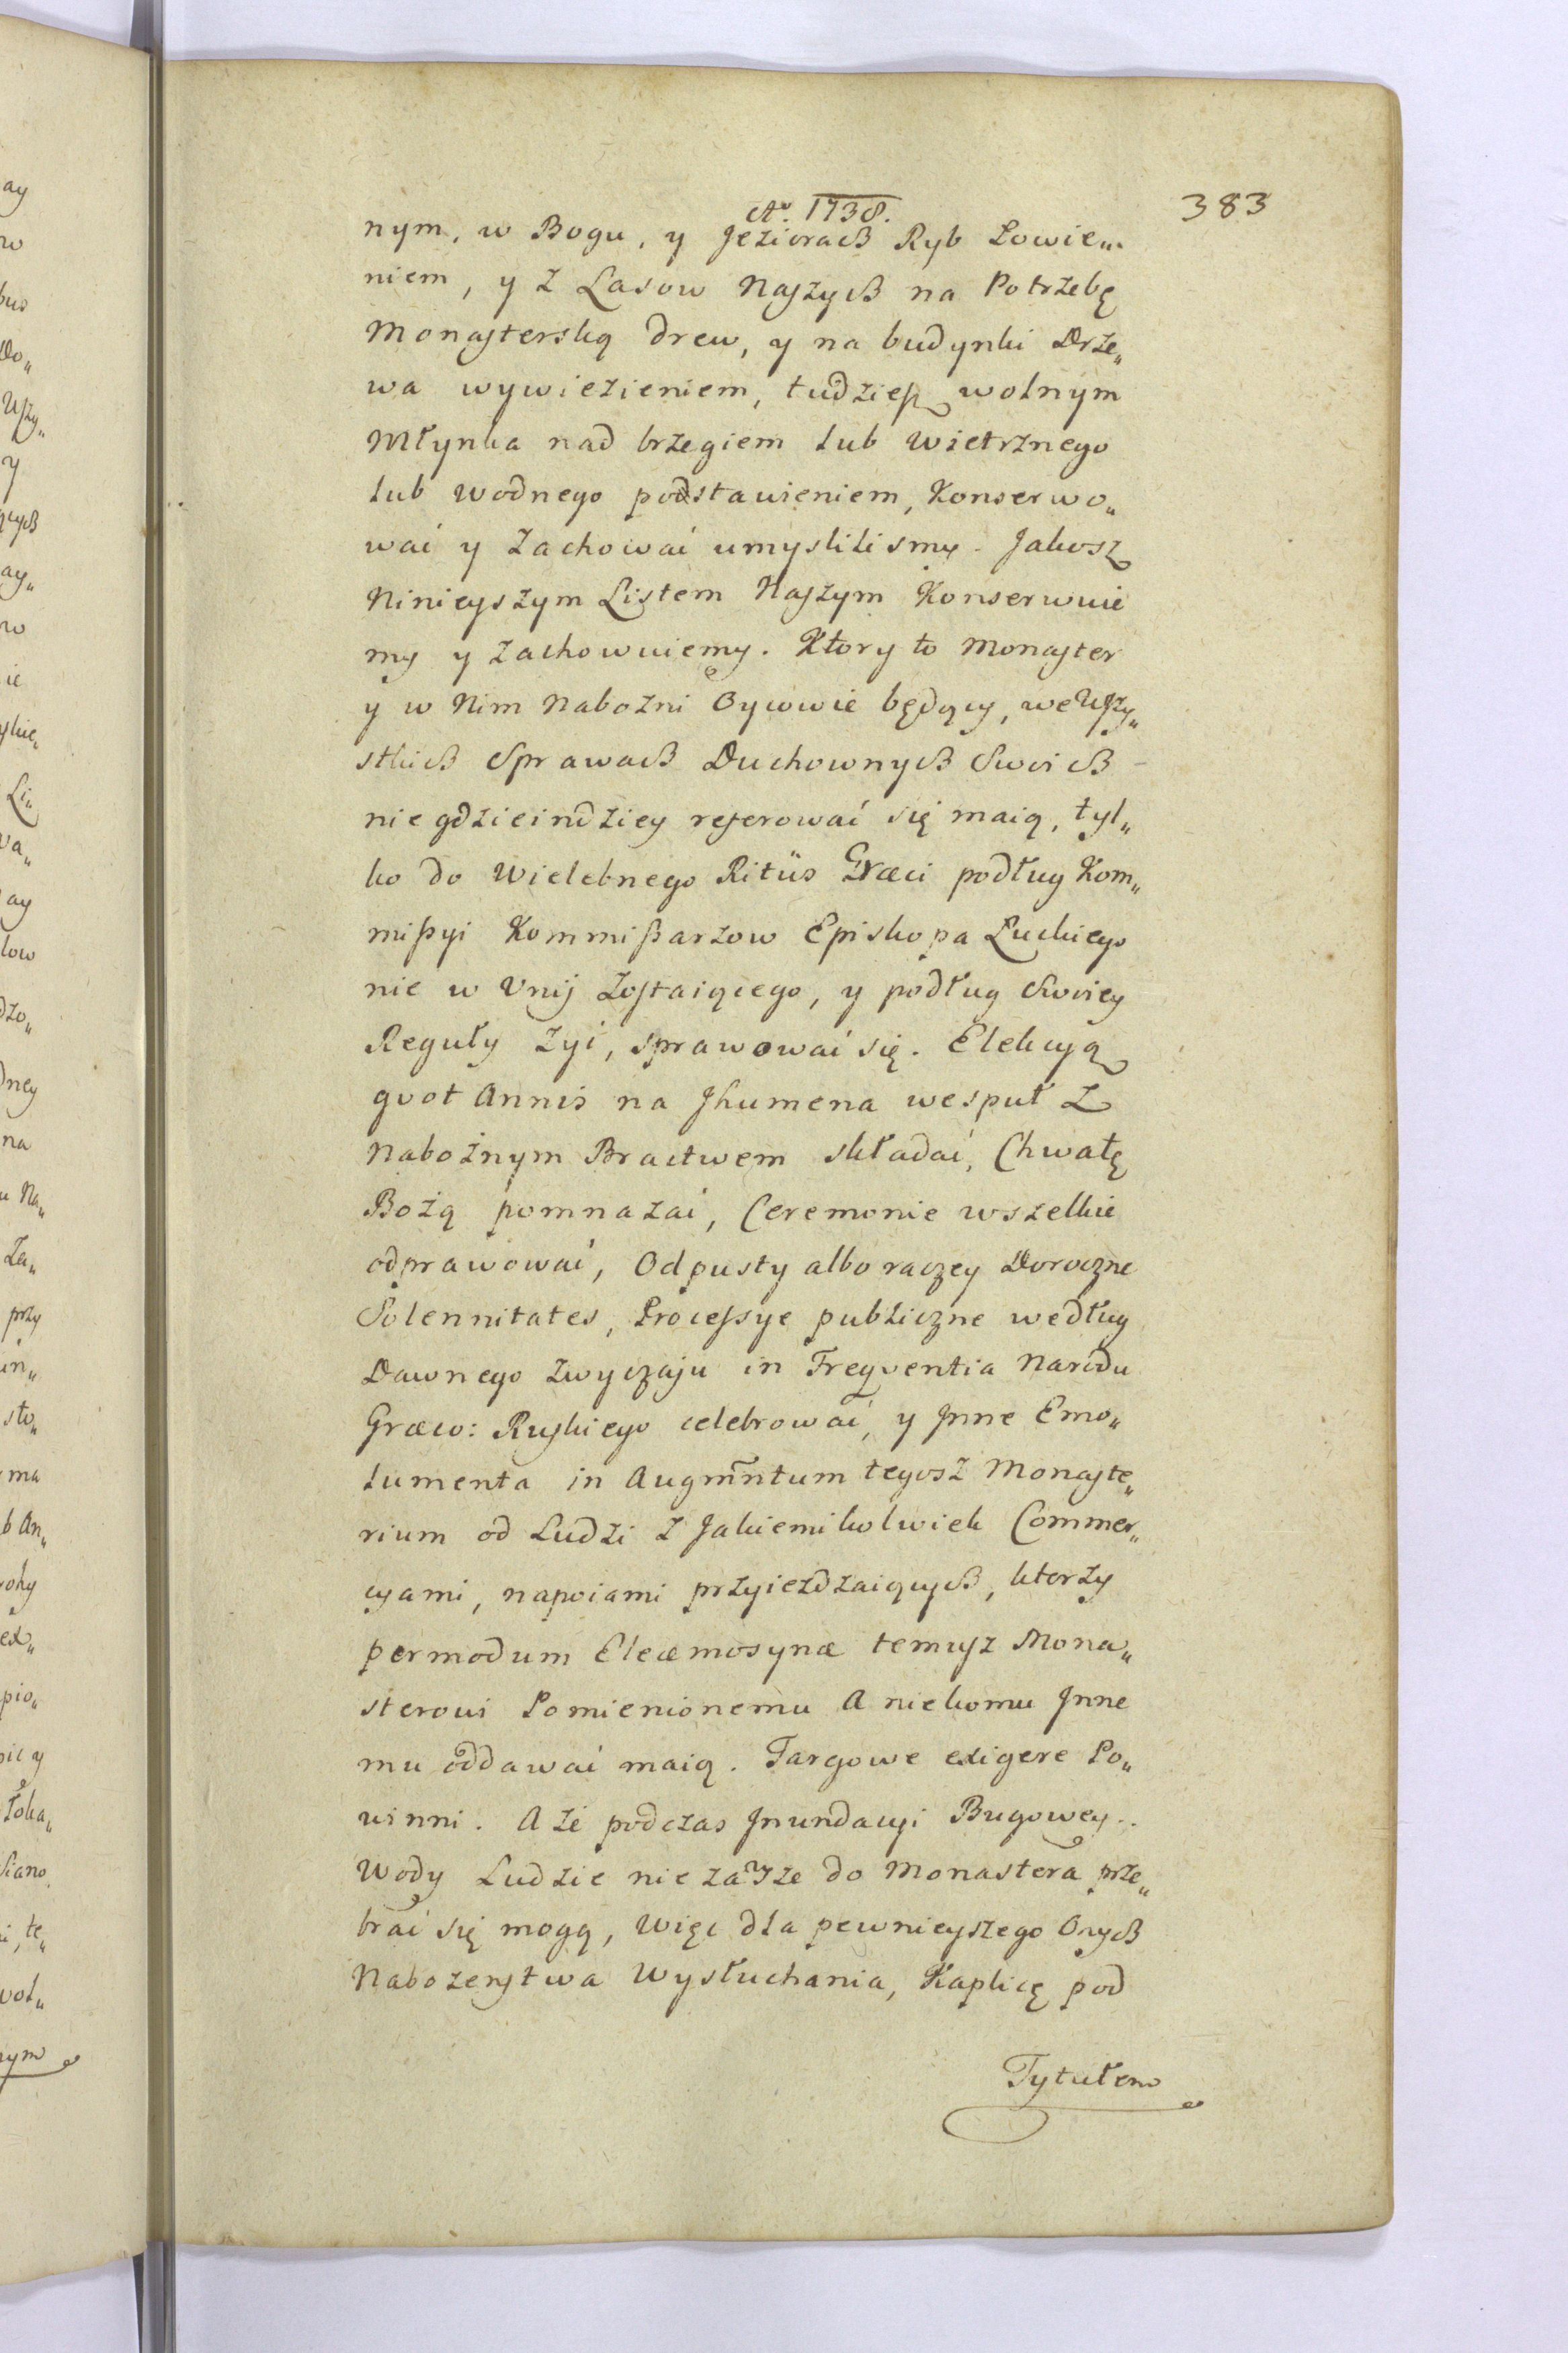 Aō. 1738.
383
nym, w Bogu, y Jeziorach Ryb Łowie„
niem, y z Lasow Naszych na Potrzebę
Monasterską drew, y na budynki Drze„
wa wywiezieniem, tudziesz wolnym
Młynka nad brzegiem lub wietrznego
lub wodnego podstawieniem, Konserwo„
wać y zachować umyslilismy. Jakosz
Ninieyszym Listem Naszym Konserwuie
my y zachowuiemy. Ktory to Monaster
y w Nim Nabozni Oycowie będący, we Wszy„
stkich Sprawach Duchownych Swoich
nie gdzieindziey referować się maią, tyl„
ko do Wielebnego Ritüs Græci podług Kom„
missyi Kommissarzow Episkopa Łuckiego
nie w Unij zostaiącego, y podług Swoiey
Reguły zyć, sprawować się. Elekcyą
qvot Annis na Jhumena wespuł z
Nabożnym Bractwem składać, Chwałę
Bożą pomnazać, Ceremonie wszelkie
odprawować, Odpusty albo raczey Doroczne
Solennitates, Processye publiczne według
Dawnego zwyczaju in Freqventia Narodu
Græco: Ruskiego celebrować, y Jnne Emo„
lumenta in Augmntum tegosz Monaste„
rium od Ludzi z Jakiemikolwiek Commer„
cyami, napoiami przyiezdzaiących, ktorzy
per modum Eleæmosynæ temusz Mona„
sterowi Pomienionemu A niekomu Jnne
mu oddawać maią. Targowe exigere Po„
winni. A że podczas Jnundacyi Bugowey
Wody Ludzie nie zawsze do Monastera prze„
brać się mogą, Więc dla pewnieyszego Onych
Nabozenstwa Wysłuchania, Kaplicę pod
Tytułem